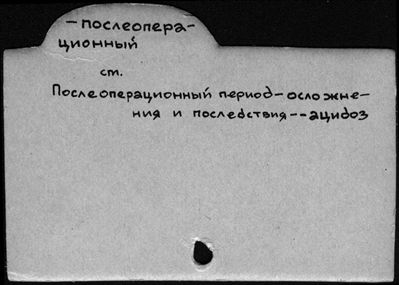 — послеопера-
ционный
ст.
Послеоперационный период — осложне-
ния и последствия -- ацидоз